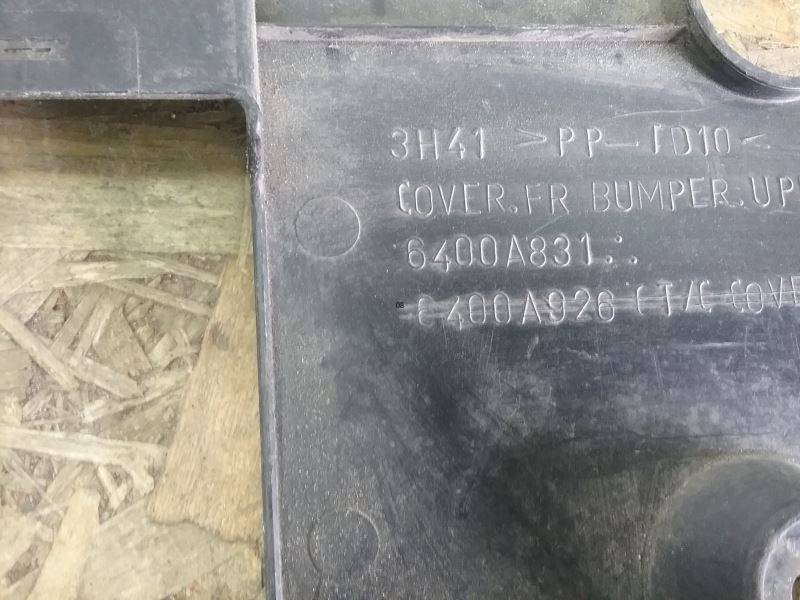 3H41 >PP-TD10<
COVER.FR BUMPER.UP
6400A831
08
6400A926 (T/C COVE